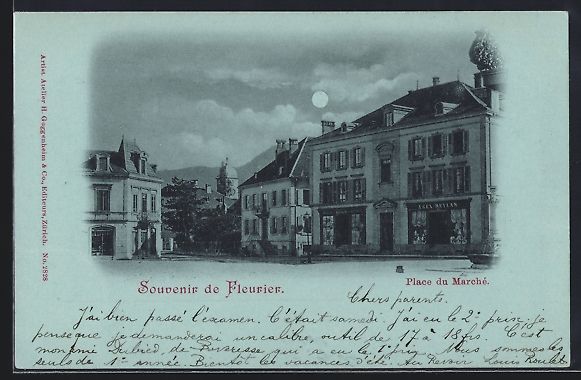 Artist. Atelier H. Guggenheim & Co., Editeurs, Zürich. No. 2828
EUGN. BEYLAN
Souvenir de Fleurier.
Place du Marché.
Chers parents.
J'ai bien passé l'examen. C'était samedi J'ai eu le 2e prix. je
pense que je demanderai un calibre, outil de 17 à 18 frs. C'est
mon ami Dubied de Boveresse qui a eu le 1er prix. Nous sommes les
seuls de 1re année. Bientôt les vacances d'été. Au Revoir Louis Roulet